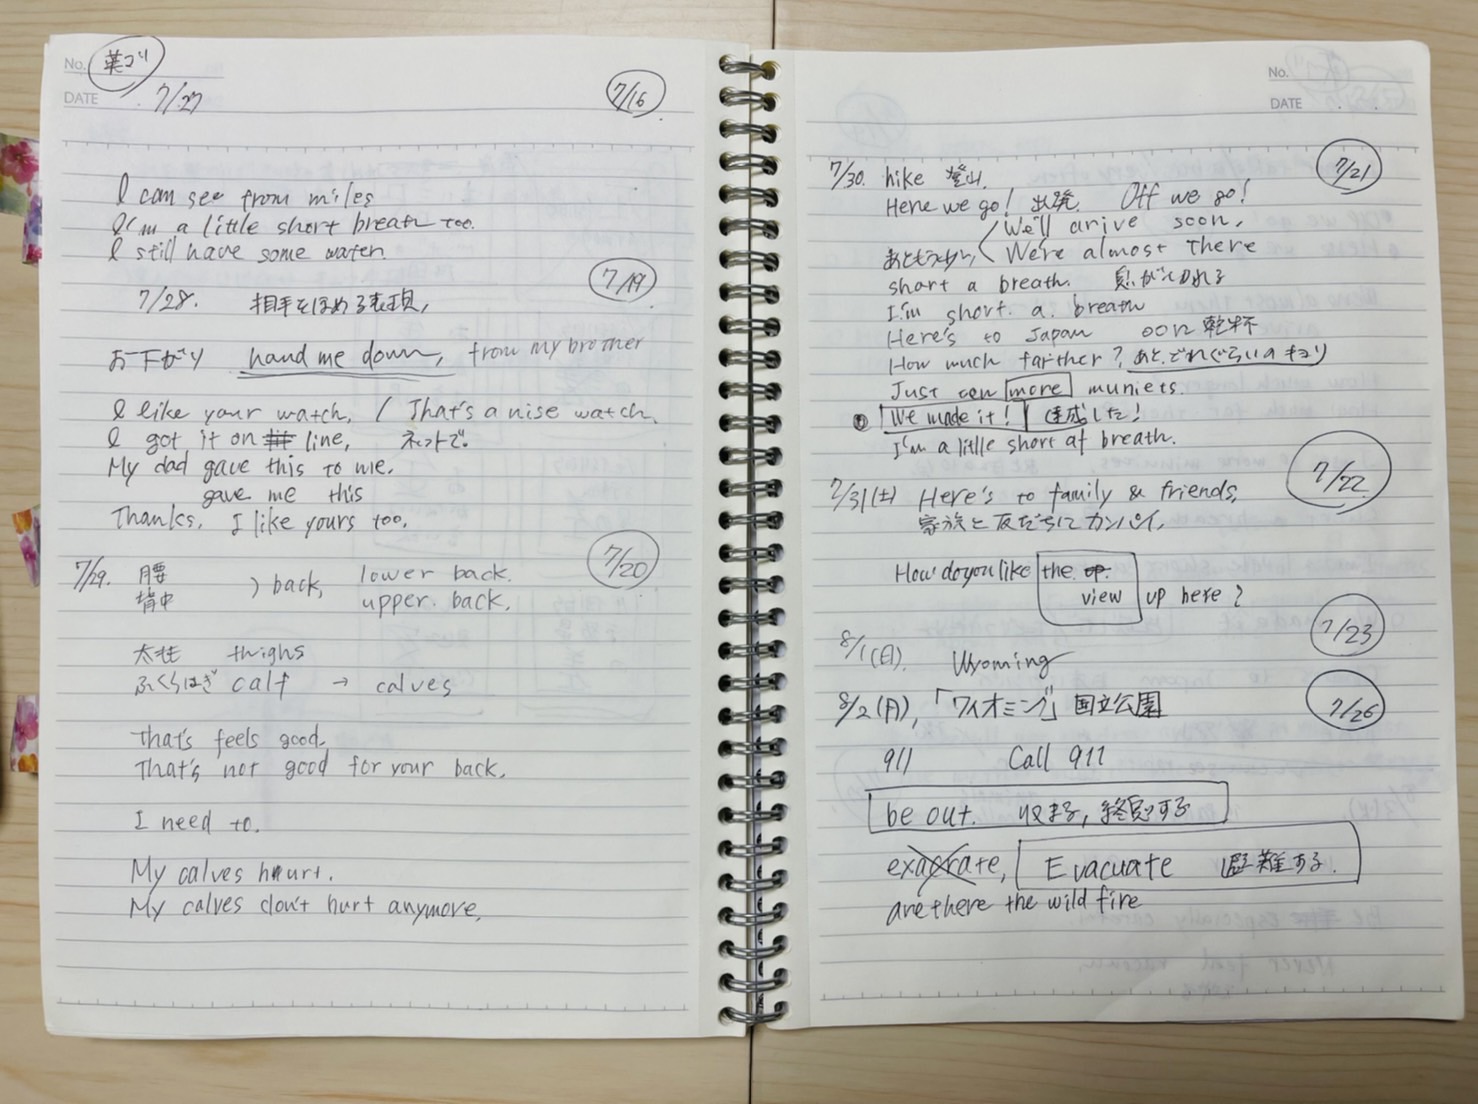 No. 英ゴリ
DATE 7/27
7/16
I can see from miles
I'm a little short breath too.
I still have some water.
7/19
7/28. 相手をほめる表現,
お下がり hand me down, from my brother
I like your watch, / That's a nise watch.
I got it on line, ネットで。
My dad gave this to me.
gave me this
Thanks, I like yours too.
7/20
7/29. 腰
背中
) back, lower back.
upper. back.
太壮 thighs
ふくらはぎ calf → calves
That's feels good.
That's not good for your back.
I need to.
My calves hurt.
My calves don't hurt anymore.
No.
DATE
7/21
7/30. hike 登山.
Here we go! 出発 Off we go!
We'll arive soon,
あともう少し, We're almost there
short a breath. 息が切れる
I'm short. a. breath
Here's to Japan ○○に乾杯
How much farther? あと、どれぐらいのキョリ
Just ten more muniets.
We made it! 達成した!
I'm a little short of breath.
7/22
7/31(土) Here's to family & friends,
家族と友だちにカンパイ,
How do you like the up.
view up here?
7/23
8/1(日). Wyoming
7/26
8/2(月),「ワイオミング」国立公園
911 Call 911
be out. 収まる, 終息する
exacrate, Evacuate 避難する.
are there the wild fire